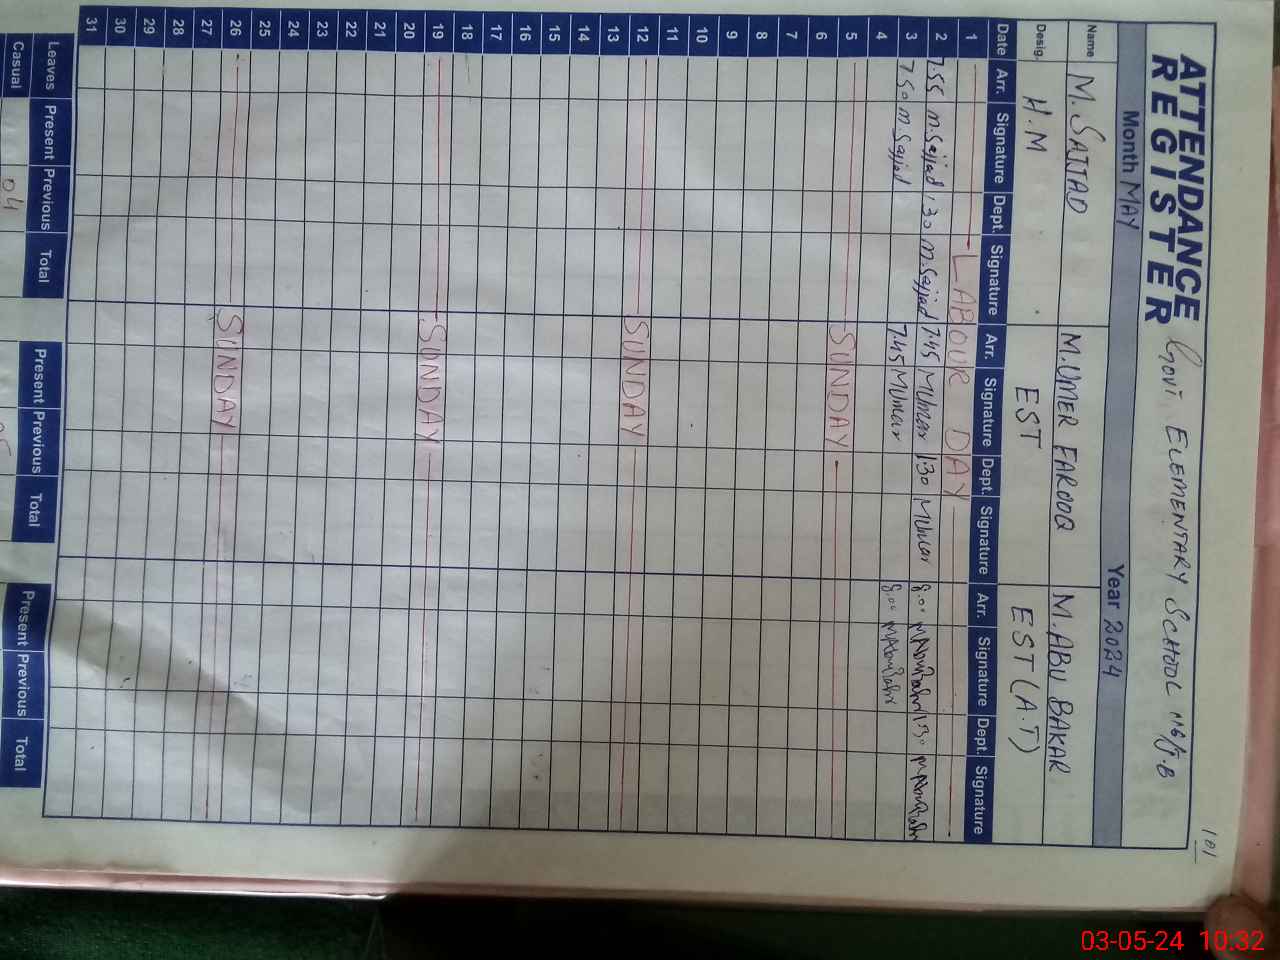 101
ATTENDANCE
REGISTER
Govt. ELEMENTARY SCHOOL 116/J.B
Month MAY Year 2024
Name M. SAJJAD M. UMER FAROOQ M. ABU BAKAR
Desig. H.M EST EST (A.T)
Date Arr. Signature Dept. Signature Arr. Signature Dept. Signature Arr. Signature Dept. Signature
1 LABOUR DAY
2 7.55 M.Sajjad 1.30 M.Sajjad 7.45 MUmar 130 MUmar 8.00 1.30
3 7.50 M.Sajjad 7.45 MUmar 8.00
4
5 SUNDAY
6
7
8
9
10
11
12 SUNDAY
13
14
15
16
17
18
19 SUNDAY
20
21
22
23
24
25
26 SUNDAY
27
28
29
30
31
Leaves Present Previous Total Present Previous Total Present Previous Total
Casual 04
03-05-24 10:32